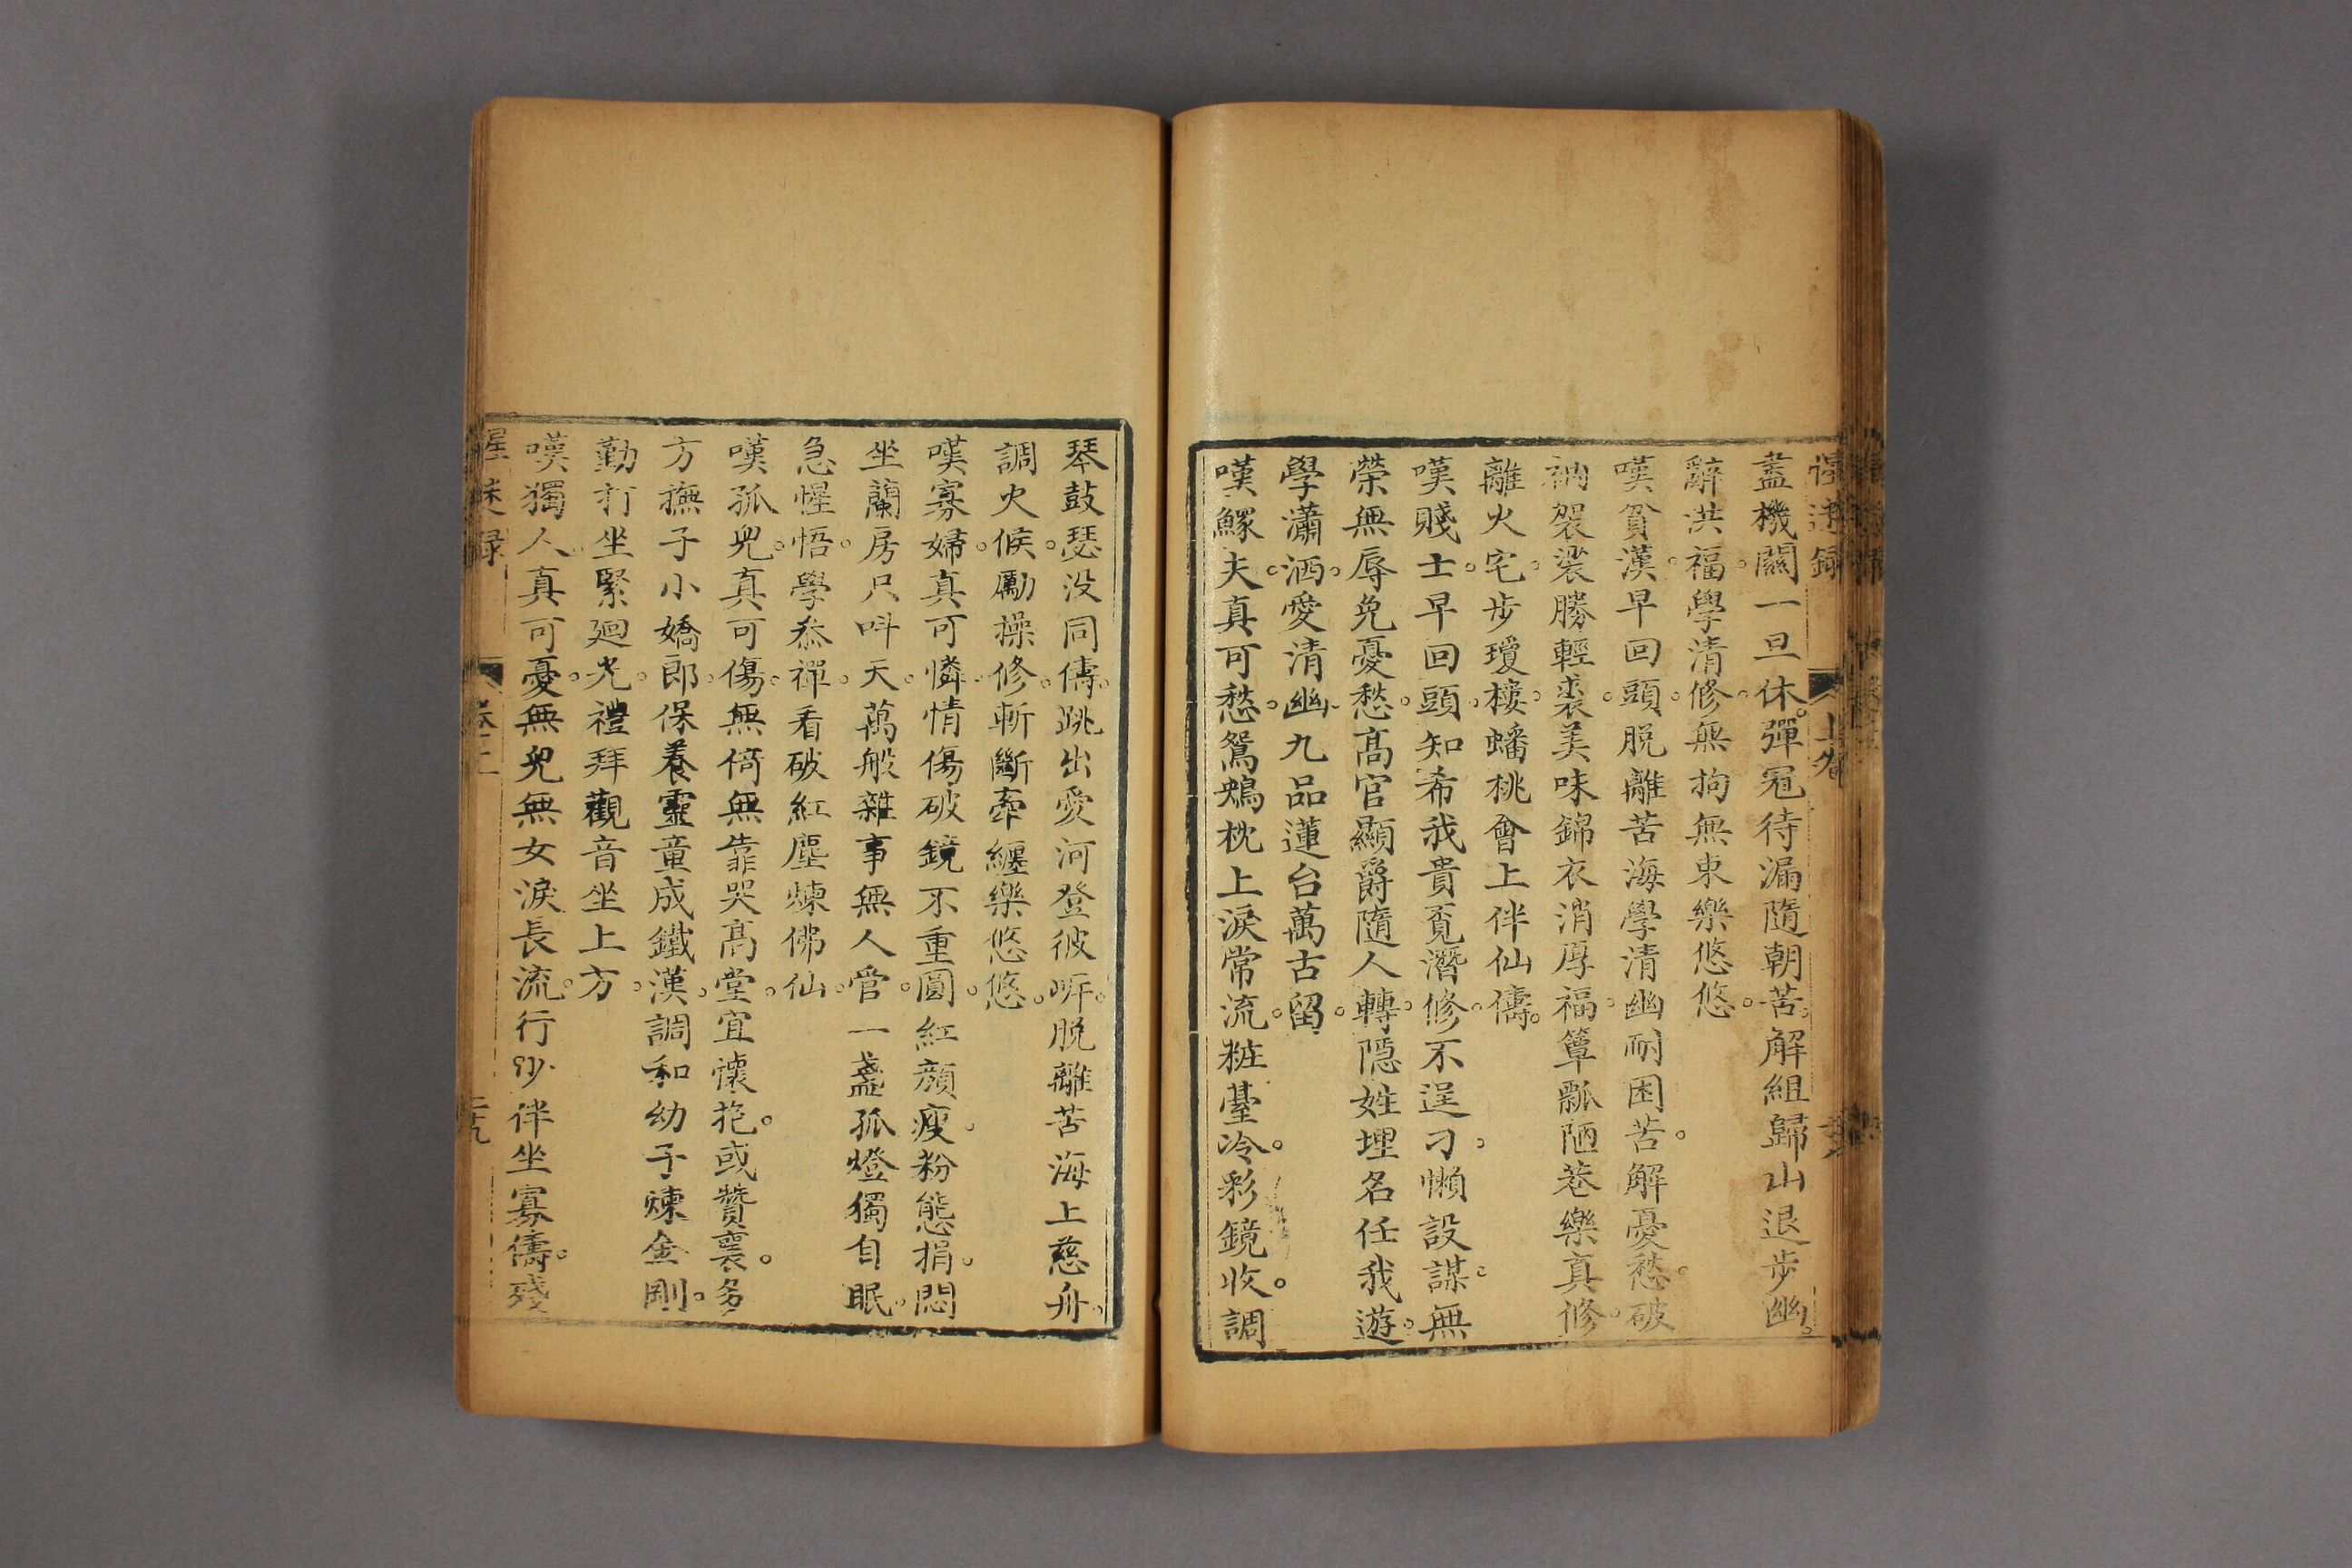 醒迷錄 上卷
蓋機關一旦休。彈冠待漏隨朝苦。解組歸山退步幽。
辭洪福。學清修。無拘無束樂悠悠。
嘆貧漢。早回頭。脫離苦海學清幽。耐困苦。解憂愁。破
衲袈裟勝輕裘。美味錦衣消厚福。簞瓢陋巷樂真修。
離火宅。步瓊樓。蟠桃會上伴仙儔。
嘆賤士。早回頭。知希我貴覔潛修。不逞刁。懶設謀。無
榮無辱免憂愁。高官顯爵隨人轉。隱姓埋名任我遊。
學瀟洒。愛清幽。九品蓮台萬古留。
嘆鰥夫。真可愁。鴛鴂枕上淚常流。粧臺冷。彩鏡收。調
琴鼓瑟没同儔。跳出愛河登彼岍。脫離苦海上慈舟。
調火候。勵操修。斬斷牽纏樂悠悠。
嘆寡婦。真可憐。情傷破鏡不重圓。紅顏瘦。粉態捐。悶
坐蘭房只呌天。萬般雜事無人管。一盞孤燈獨自眠。
急惺悟。學叅禪。看破紅塵煉佛仙。
嘆孤兒。真可傷。無倚無靠哭高堂。宜懷抱。或贊襄。多
方撫子小嬌郎。保養靈童成鐵漢。調和幼子煉金剛。
勤打坐。緊廻光。禮拜觀音坐上方。
嘆獨人。真可憂。無兒無女淚長流。行少伴。坐寡儔。殘
醒迷錄 卷上